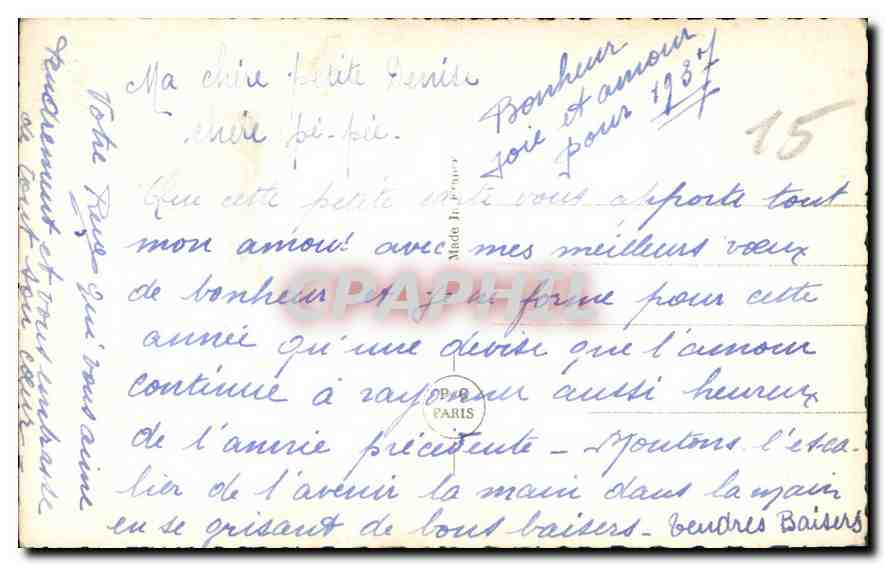 Ma chère petite Denise
chère pé-pée.
Bonheur
joie et amour
pour 1937
15
Que cette petite carte vous apporte tout
mon amour avec mes meilleurs vœux
de bonheur et je ne forme pour cette
année qu'une devise que l'amour
continue à rayonner aussi heureux
de l'année précédente - Montons l'esca-
lier de l'avenir la main dans la main
en se grisant de bons baisers - tendres Baisers
Votre qui vous aime
tendrement et vous embrasse
de tout son cœur -
Made In France
PARIS
CPARPHIL